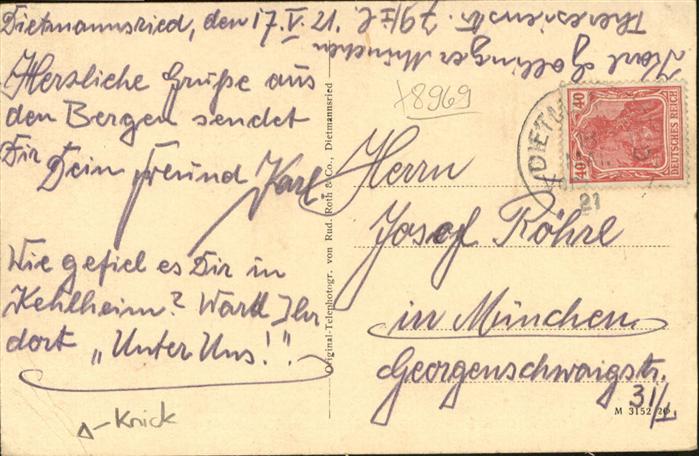 Dietmannsried, den 17.V.21.
Herzliche Grüße aus
den Bergen sendet
Dir Dein Freund Karl.
Wie gefiel es Dir in
Kehlheim? Wart Ihr
dort „Unter Uns!".
Karl Gollinger München
Theresienstr. 79/I. l.
+8969
Herrn
Josef Röhrl
in München
Georgenschwaigstr.
31/I.
Original-Telephotogr. von Rud. Roth & Co., Dietmannsried
M 3152 20
40 40
DEUTSCHES REICH
DIETM
21
Knick